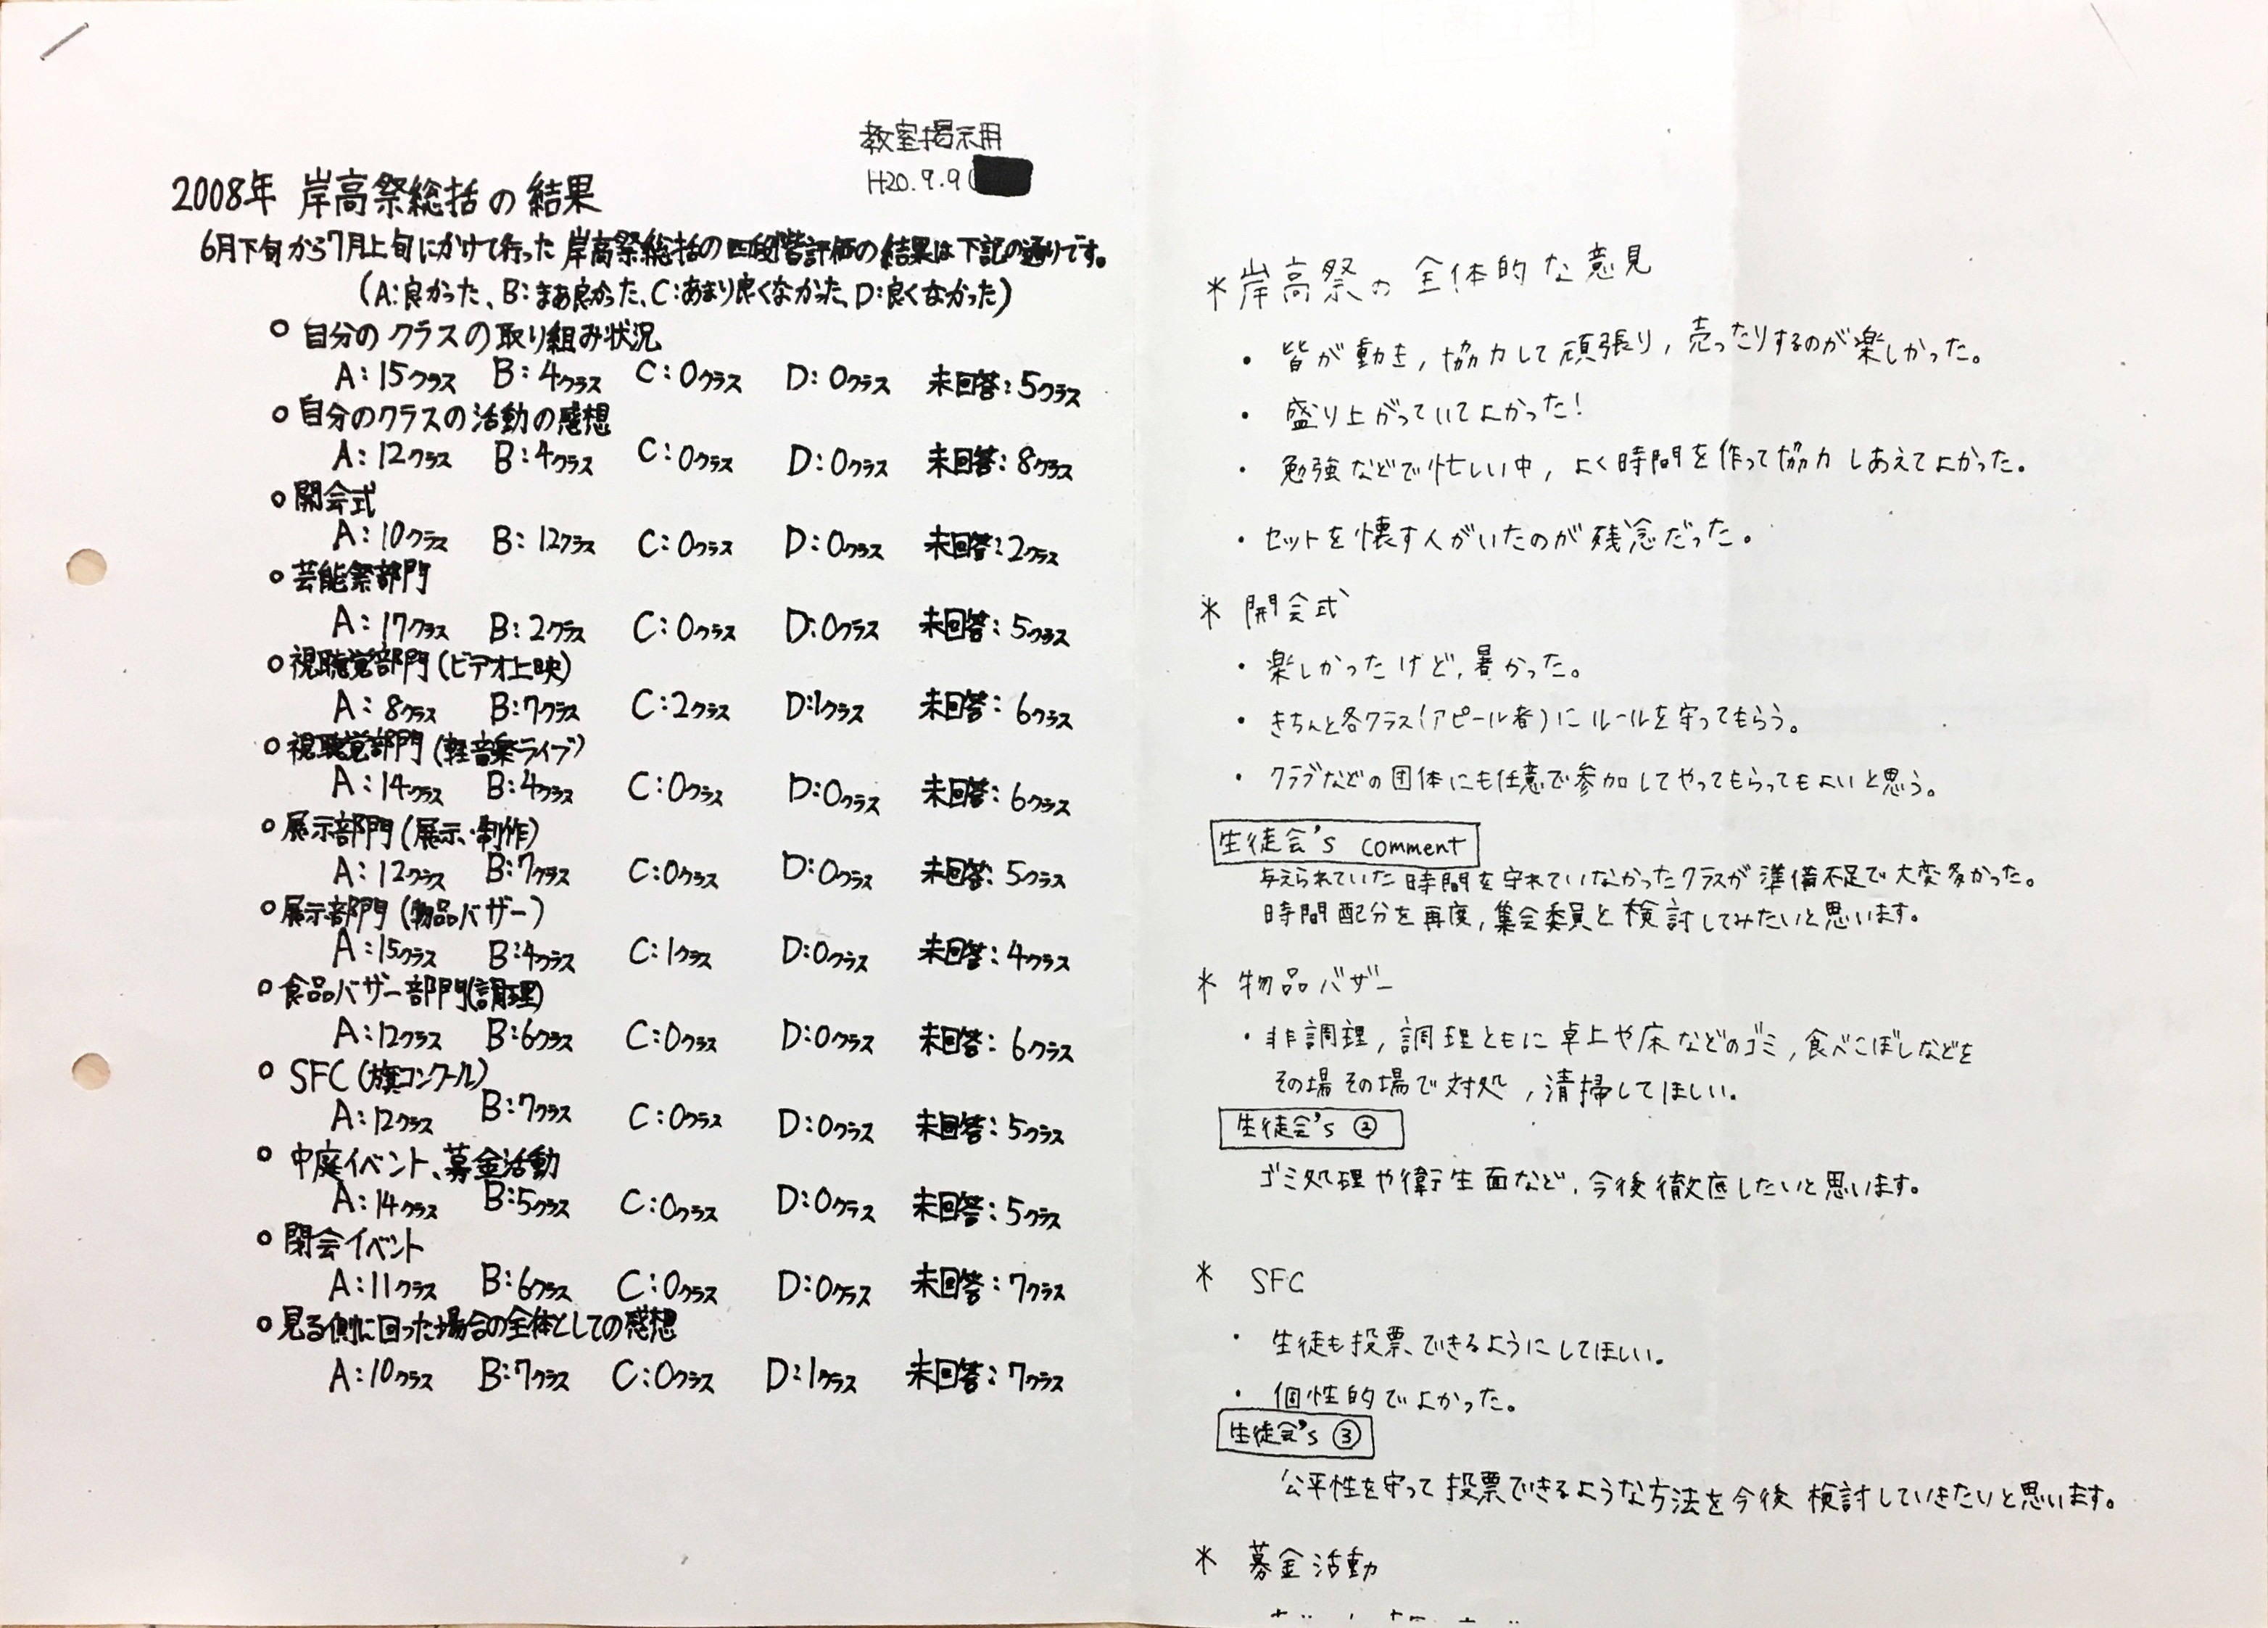 教室掲示用
H20.9.9(
2008年 岸高祭総括の結果
6月下旬から7月上旬にかけて行った岸高祭総括の四段階評価の結果は下記の通りです。
(A:良かった、B:まあ良かった、C:あまり良くなかった、D:良くなかった)
○ 自分のクラスの取り組み状況
A:15クラス B:4クラス C:0クラス D:0クラス 未回答:5クラス
○ 自分のクラスの活動の感想
A:12クラス B:4クラス C:0クラス D:0クラス 未回答:8クラス
○ 開会式
A:10クラス B:12クラス C:0クラス D:0クラス 未回答:2クラス
○ 芸能祭部門
A:17クラス B:2クラス C:0クラス D:0クラス 未回答:5クラス
○ 視聴覚部門(ビデオ上映)
A:8クラス B:7クラス C:2クラス D:1クラス 未回答:6クラス
○ 視聴覚部門(軽音楽ライブ)
A:14クラス B:4クラス C:0クラス D:0クラス 未回答:6クラス
○ 展示部門(展示・制作)
A:12クラス B:7クラス C:0クラス D:0クラス 未回答:5クラス
○ 展示部門(物品バザー)
A:15クラス B:4クラス C:1クラス D:0クラス 未回答:4クラス
○ 食品バザー部門(調理)
A:12クラス B:6クラス C:0クラス D:0クラス 未回答:6クラス
○ SFC(旗コンクール)
A:12クラス B:7クラス C:0クラス D:0クラス 未回答:5クラス
○ 中庭イベント、募金活動
A:14クラス B:5クラス C:0クラス D:0クラス 未回答:5クラス
○ 閉会イベント
A:11クラス B:6クラス C:0クラス D:0クラス 未回答:7クラス
○ 見る側に回った場合の全体としての感想
A:10クラス B:7クラス C:0クラス D:1クラス 未回答:7クラス
* 岸高祭の全体的な意見
・ 皆が動き, 協力して頑張り, 売ったりするのが楽しかった。
・ 盛り上がっていてよかった!
・ 勉強などで忙しい中, よく時間を作って協力しあえてよかった。
・ セットを懐す人がいたのが残念だった。
* 開会式
・ 楽しかったけど, 暑かった。
・ きちんと各クラス(アピール者)にルールを守ってもらう。
・ クラブなどの団体にも任意で参加してやってもらってもよいと思う。
生徒会's comment
与えられていた時間を守れていなかったクラスが準備不足で大変多かった。
時間配分を再度, 集会委員と検討してみたいと思います。
* 物品バザー
・ 非調理, 調理ともに卓上や床などのゴミ, 食べこぼしなどを
その場その場で対処, 清掃してほしい。
生徒会's ②
ゴミ処理や衛生面など, 今後徹底したいと思います。
* SFC
・ 生徒も投票できるようにしてほしい。
・ 個性的でよかった。
生徒会's ③
公平性を守って投票できるような方法を今後検討していきたいと思います。
* 募金活動